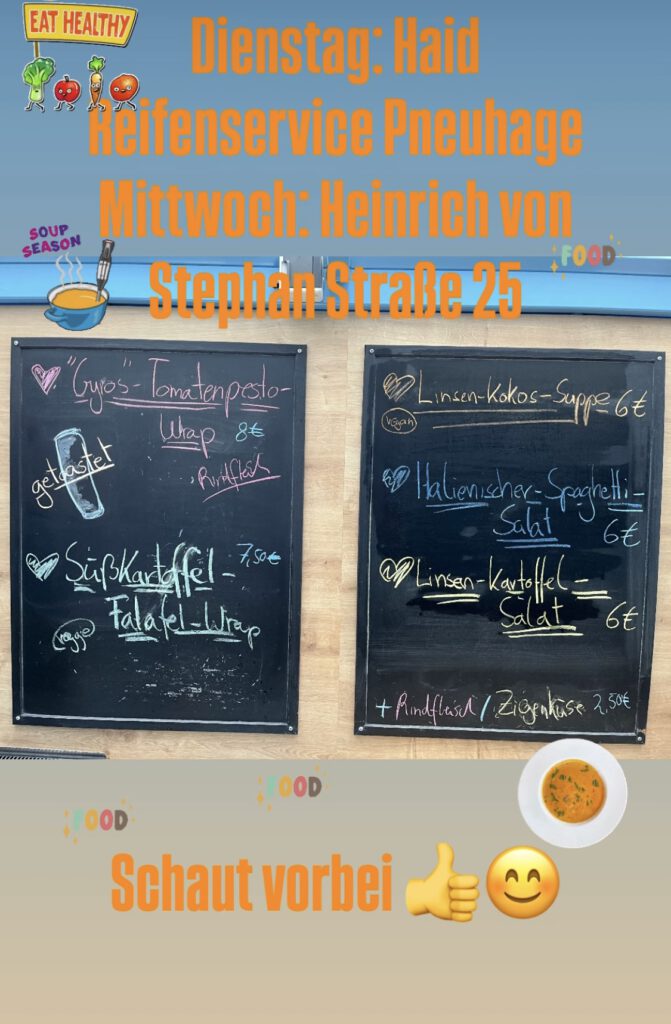 EAT HEALTHY
Dienstag: Haid
Reifenservice Pneuhage
Mittwoch: Heinrich von
Stephan Straße 25
SOUP
SEASON
FOOD
"Gyros"-Tomatenpesto-
Wrap 8€
Rindfleisch
getoastet
Süßkartoffel- 7,50€
Falafel-Wrap
veggie
Linsen-Kokos-Suppe 6€
vegan
Italienischer-Spaghetti-
Salat 6€
Linsen-Kartoffel-
Salat 6€
+ Rindfleisch / Ziegenkäse 2,50€
FOOD
FOOD
Schaut vorbei 👍😊